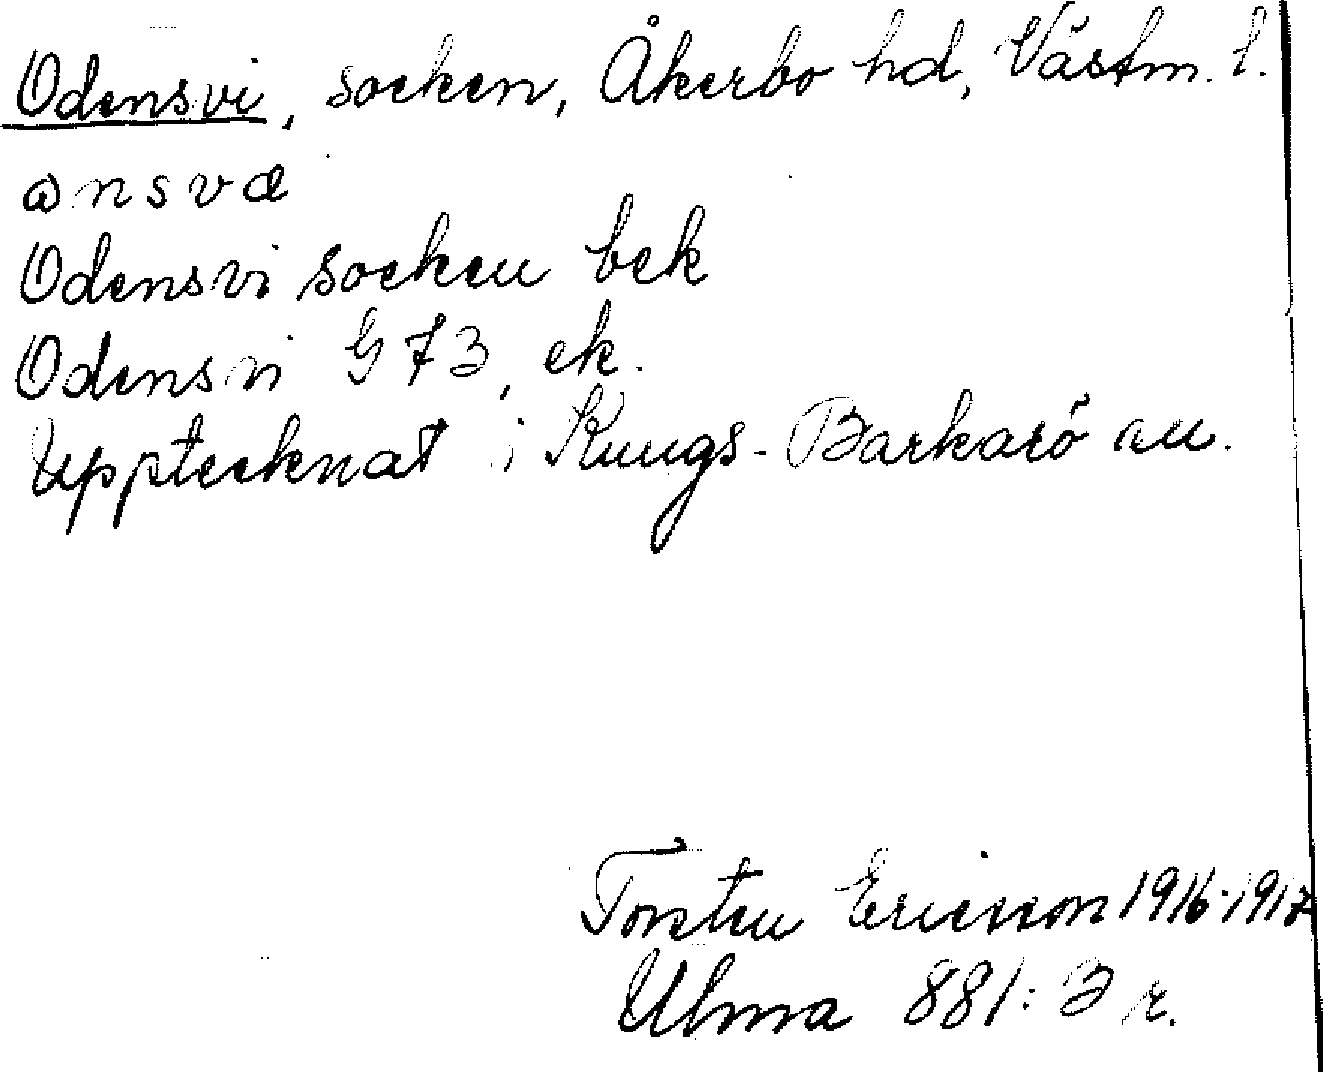 Odensvi, socken, Åkerbo hd, Västm. l.
Odensvi socken bek
Odensvi G 73, ek.
Upptecknat i Kungs-Barkarö au.
Torsten Ericsson 1916-1917
Ulma 881:3 r.